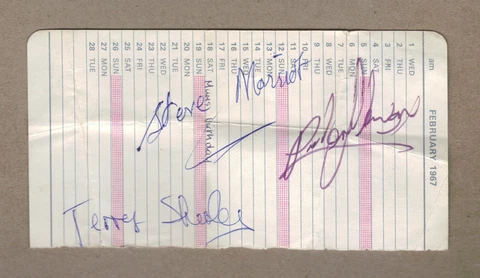 FEBRUARY 1967
am
1 WED
2 THU
3 FRI
4 SAT
5 SUN
6 MON
7 TUE
8 WED
9 THU
10 FRI
11 SAT
12 SUN
13 MON
14 TUE
15 WED
16 THU
17 FRI
18 SAT Mums birthday
19 SUN
20 MON
21 TUE
22 WED
23 THU
24 FRI
25 SAT
26 SUN
27 MON
28 TUE
Steve Marriot